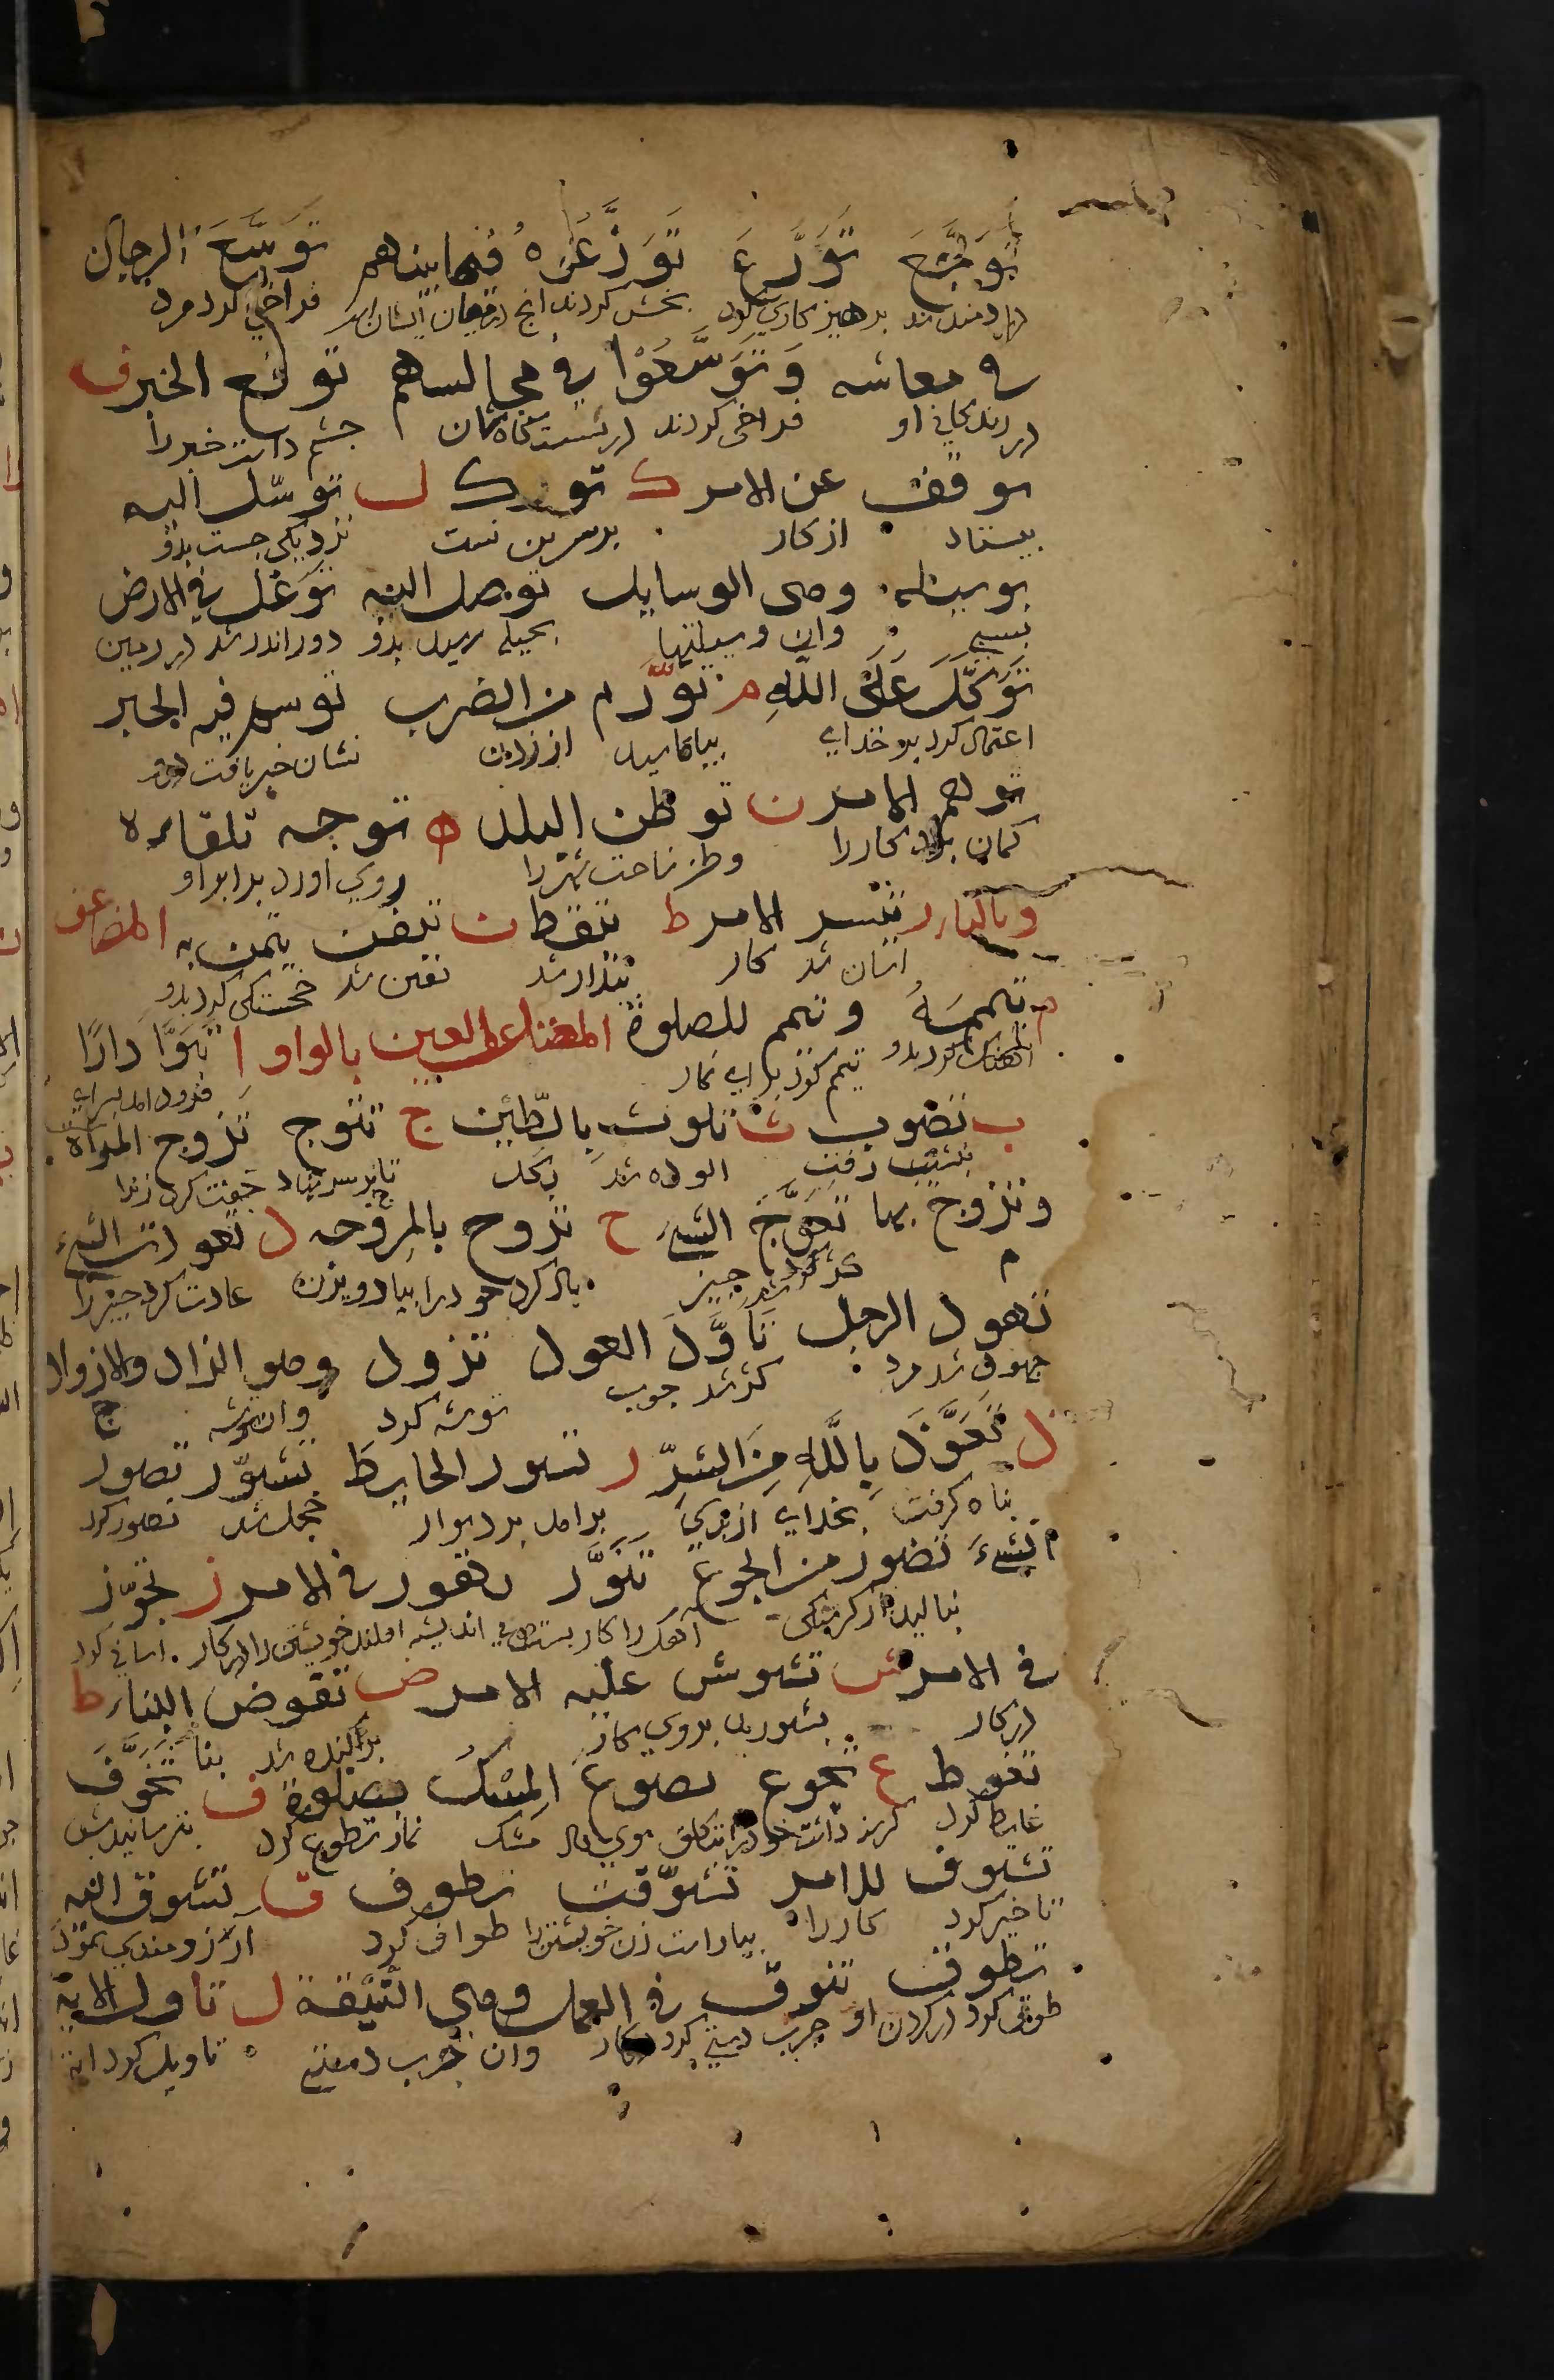 تَوَجَّعَ تَوَرَّعَ تَوَزَّعُوهُ فيما بينهم تَوَسَّعَ الرجل
دردمند شد پرهیز کاری کرد بخش کردند انچ درمیان ایشان است فراخی کرد مرد
فی معاشه وَتَوَسَّعُوْا فی مجالسهم توقع الخبر ف
در زندکانی او فراخی کردند در نشستگاهشان چشم داشت خبر را
توقف عن الامر ك تورك ل توسّل الیه
بیستاد از کار برسرین نشست نزدیکی جست بدو
بوسیلة وهی الوسایل توصل الیه توغل فی الارض
بسببی وان وسیلتها بحیله رسید بدو دور اندر شد در زمین
تَوَكَّلَ عَلَی اللّٰهِ م تورّم من الضرب توسم فیه الخیر
اعتماد کرد بر خدای بیاماسید از زدن نشان خیر یافت
توهم الامر ن توطن البلد ه توجه تلقاءه
کمان برد کار را وطن ساخت شهر را روی اورد برابر او
وبالیاء ر تیسر الامر ط تیقظ ن تیقن تیمن به المضاعف
اسان شد کار بیدار شد یقین شد خجستکی کرد بدو
م تیممه وتیمم للصلوة المعتل العین بالواو ا تَبَوَّأَ دَارًا
اهنک کرد بدو تیمم کرد برای نماز فرود امد بسرای
ب تصوب ث تلوث بالطّین ج تتوج تزوج المراة
بنشیب رفت الوده شد بکل تاج بر سر نهاد جفت کرد زنرا
وتزوج بها تعوَّجَ الشیء ح تروح بالمروحه د تعود الشیء
کژ شد چیز باد کرد خود را بباد ویزن عادت کرد چیز را
تهود الرجل تَأَوَّدَ العود تزود وهو الزاد والازواد
جهود شد مرد کژ شد چوب توشه کرد وان توشه
ذ تَعَوَّذَ بِاللّٰهِ مِنَ الشرِّ ر تسور الحایط تشوّر تصور
پناه کرفت بخدای از بدی برامد بر دیوار خجل شد تصور کرد
الشیءَ تضور من الجوع تَنَوَّر تهور فی الامر ز تجوّز
بنالید از کرسنکی آهک را کار بست بی اندیشه افکند خویشتن را در کار اسانی کرد
فی الامر ش تشوش علیه الامر ض تقوض البناء ط
در کار بشورید بروی کار پراکنده شد بنا
تغوط ع تجوع تضوع المسک تطوع ف تَخَوَّفَ
غایط کرد کرسنه داشت خود را بتکلف بوی داد مشک نماز تطوع کرد بترسانیدش
تسوف للامر تشوّفت تطوف ق تشوق الیه
تاخیر کرد کار را بیاراست زن خویشتن را طواف کرد آرزومندی نمود
تطوق تنوق فی العمل وهی النّیْقة ل تاول الایة
طوق کرد در کردن او چرب دستی کرد در کار وان چرب دستی تاویل کرد ایة